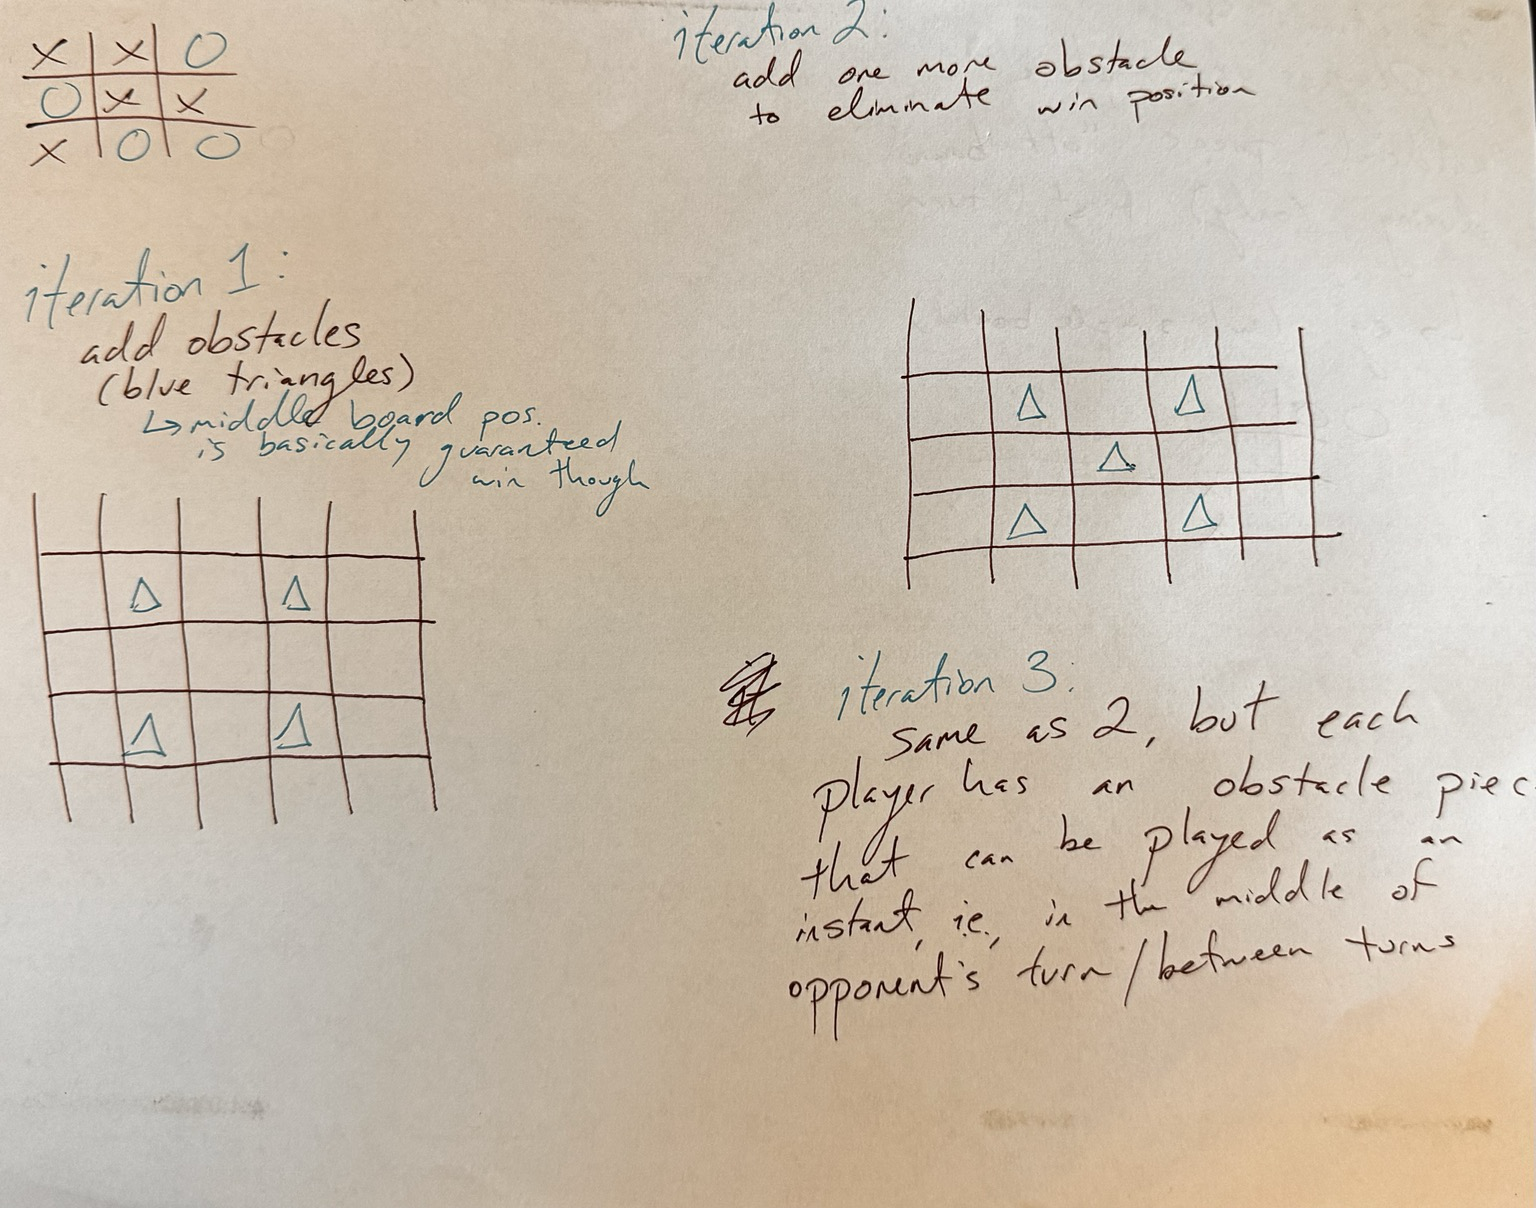 X X O
O X X
X O O
iteration 1:
add obstacles
(blue triangles)
↳ middle board pos.
is basically guaranteed
win though
iteration 2:
add one more obstacle
to eliminate win position
iteration 3:
same as 2, but each
player has an obstacle piec
that can be played as an
instant, i.e., in the middle of
opponent's turn/between turns